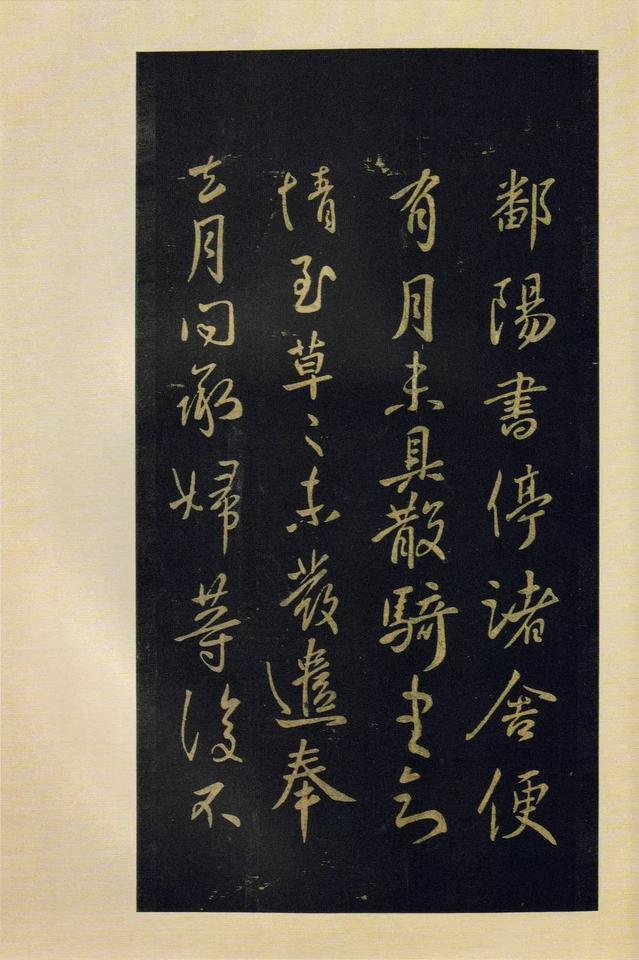 鄱陽書停諸舍便
有月未具散騎書
情至草〻未發遣奉
去月問承婦等復不